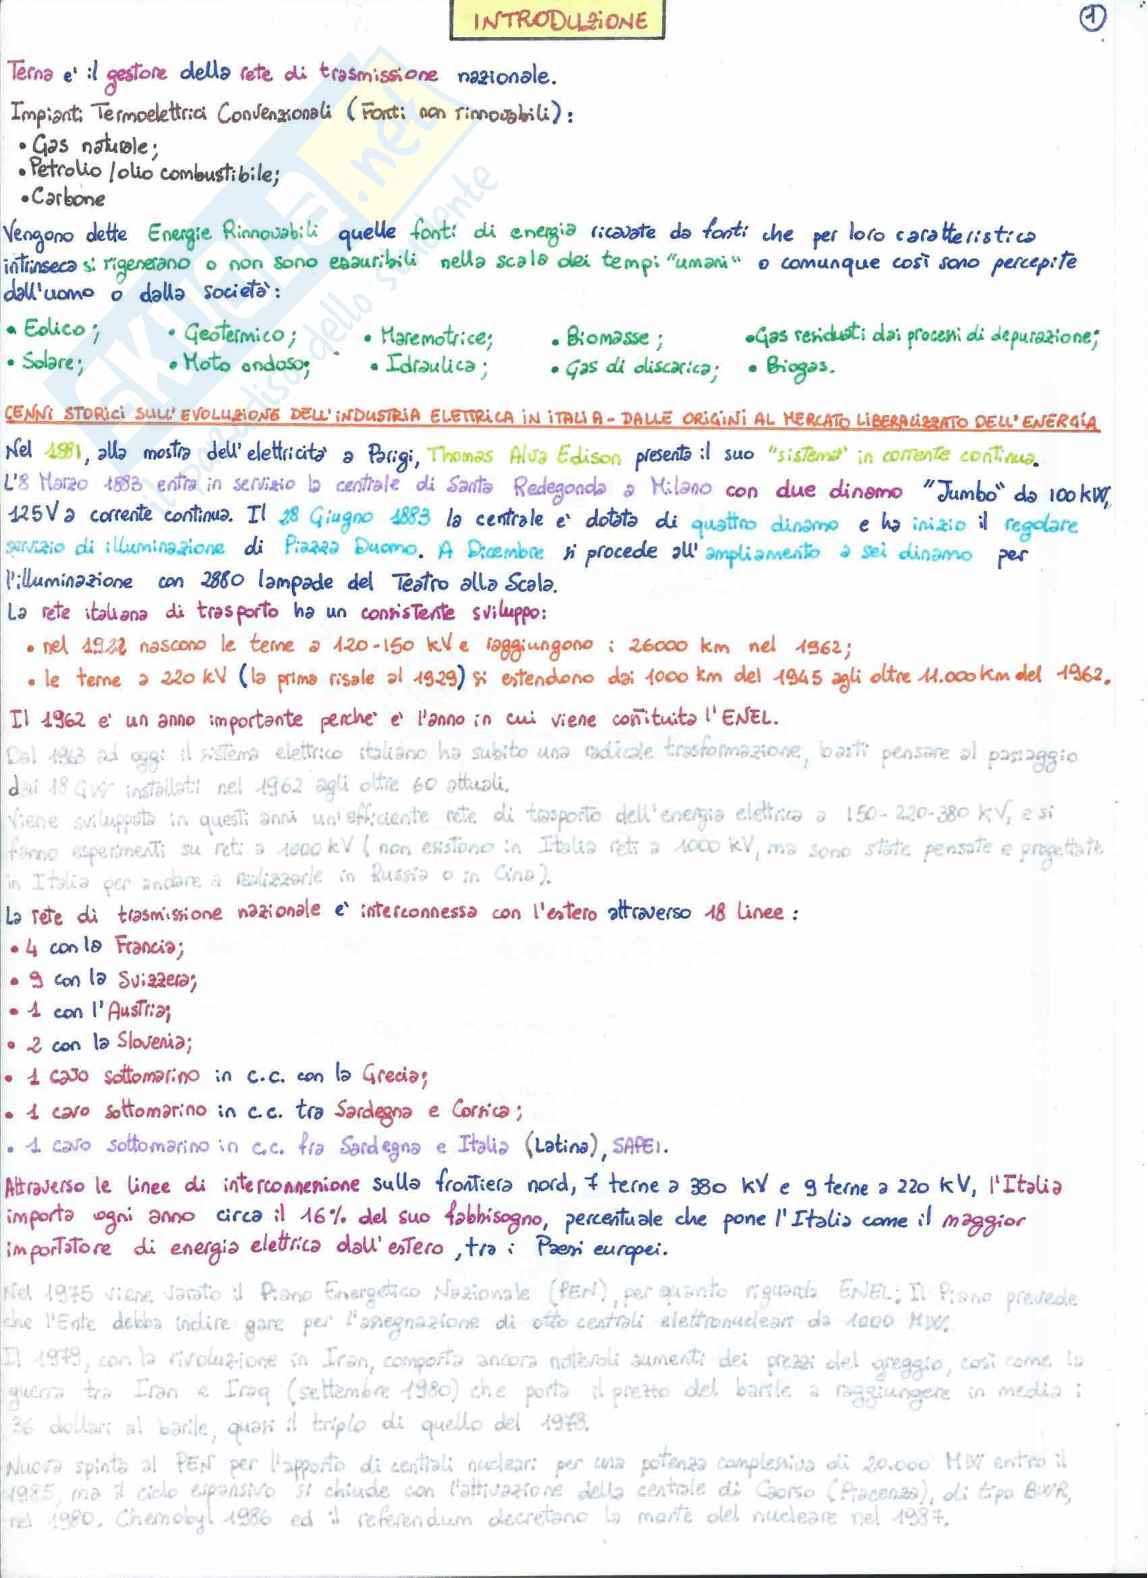 INTRODUZIONE
1
Terna e' il gestore della rete di trasmissione nazionale.
Impianti Termoelettrici Convenzionali (Fonti non rinnovabili):
• Gas naturale;
• Petrolio/olio combustibile;
• Carbone
Vengono dette Energie Rinnovabili quelle fonti di energia ricavate da fonti che per loro caratteristica
intrinseca si rigenerano o non sono esauribili nella scala dei tempi "umani" o comunque così sono percepite
dall'uomo o dalla società:
• Eolico; • Geotermico; • Maremotrice; • Biomasse; • Gas residuati dai processi di depurazione;
• Solare; • Moto ondoso; • Idraulica; • Gas di discarica; • Biogas.
CENNI STORICI SULL'EVOLUZIONE DELL'INDUSTRIA ELETTRICA IN ITALIA - DALLE ORIGINI AL MERCATO LIBERALIZZATO DELL'ENERGIA
Nel 1881, alla mostra dell'elettricità a Parigi, Thomas Alva Edison presenta il suo "sistema" in corrente continua.
L'8 Marzo 1883 entra in servizio la centrale di Santa Redegonda a Milano con due dinamo "Jumbo" da 100 kW,
125V a corrente continua. Il 28 Giugno 1883 la centrale e' dotata di quattro dinamo e ha inizio il regolare
servizio di illuminazione di Piazza Duomo. A Dicembre si procede all'ampliamento a sei dinamo per
l'illuminazione con 2880 lampade del Teatro alla Scala.
La rete italiana di trasporto ha un consistente sviluppo:
• nel 1922 nascono le terne a 120-150 kV e raggiungono i 26000 km nel 1962;
• le terne a 220 kV (la prima risale al 1929) si estendono dai 1000 km del 1945 agli oltre 11.000 Km del 1962.
Il 1962 e' un anno importante perche' e' l'anno in cui viene costituita l'ENEL.
Dal 1963 ad oggi il sistema elettrico italiano ha subito una radicale trasformazione, basti pensare al passaggio
dai 18 GW installati nel 1962 agli oltre 60 attuali.
Viene sviluppata in questi anni un'efficiente rete di trasporto dell'energia elettrica a 150-220-380 kV, e si
fanno esperimenti su reti a 1000 kV (non esistono in Italia reti a 1000 kV, ma sono state pensate e progettate
in Italia per andare a realizzarle in Russia o in Cina).
La rete di trasmissione nazionale e' interconnessa con l'estero attraverso 18 linee:
• 4 con la Francia;
• 9 con la Svizzera;
• 1 con l'Austria;
• 2 con la Slovenia;
• 1 cavo sottomarino in c.c. con la Grecia;
• 1 cavo sottomarino in c.c. tra Sardegna e Corsica;
• 1 cavo sottomarino in c.c. fra Sardegna e Italia (Latina), SAPEI.
Attraverso le linee di interconnessione sulla frontiera nord, 7 terne a 380 kV e 9 terne a 220 kV, l'Italia
importa ogni anno circa il 16% del suo fabbisogno, percentuale che pone l'Italia come il maggior
importatore di energia elettrica dall'estero, tra i Paesi europei.
Nel 1975 viene varato il Piano Energetico Nazionale (PEN), per quanto riguarda ENEL: Il Piano prevede
che l'Ente debba indire gare per l'assegnazione di otto centrali elettronucleari da 1000 MW.
Il 1979, con la rivoluzione in Iran, comporta ancora notevoli aumenti dei prezzi del greggio, così come la
guerra tra Iran e Iraq (settembre 1980) che porta il prezzo del barile a raggiungere in media i
36 dollari al barile, quasi il triplo di quello del 1978.
Nuova spinta al PEN per l'apporto di centrali nucleari per una potenza complessiva di 20.000 MW entro il
1985, ma il ciclo espansivo si chiude con l'attivazione della centrale di Caorso (Piacenza), di tipo BWR,
nel 1980. Chernobyl 1986 ed il referendum decretano la morte del nucleare nel 1987.
SKUOLA.net
il paradiso dello studente